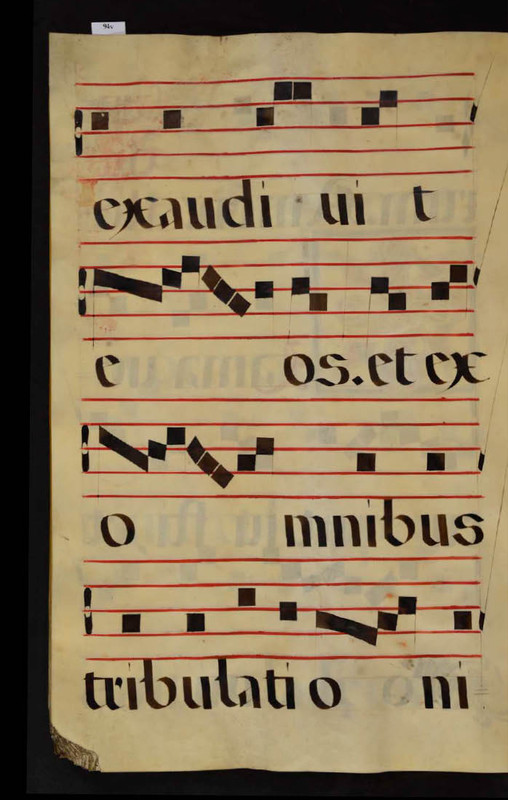 exaudi ui t
e os. et ex
o mnibus
tribulatio ni